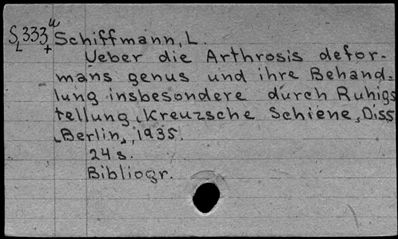 S333 u Schiffmann, L.
L +
Ueber die Arthrosis defor-
mans genus und ihre Behand-
lung insbesondere durch Ruhigs
tellung, Kreuzsche Schiene, Diss
Berlin, 1935.
24 s.
Bibliogr.